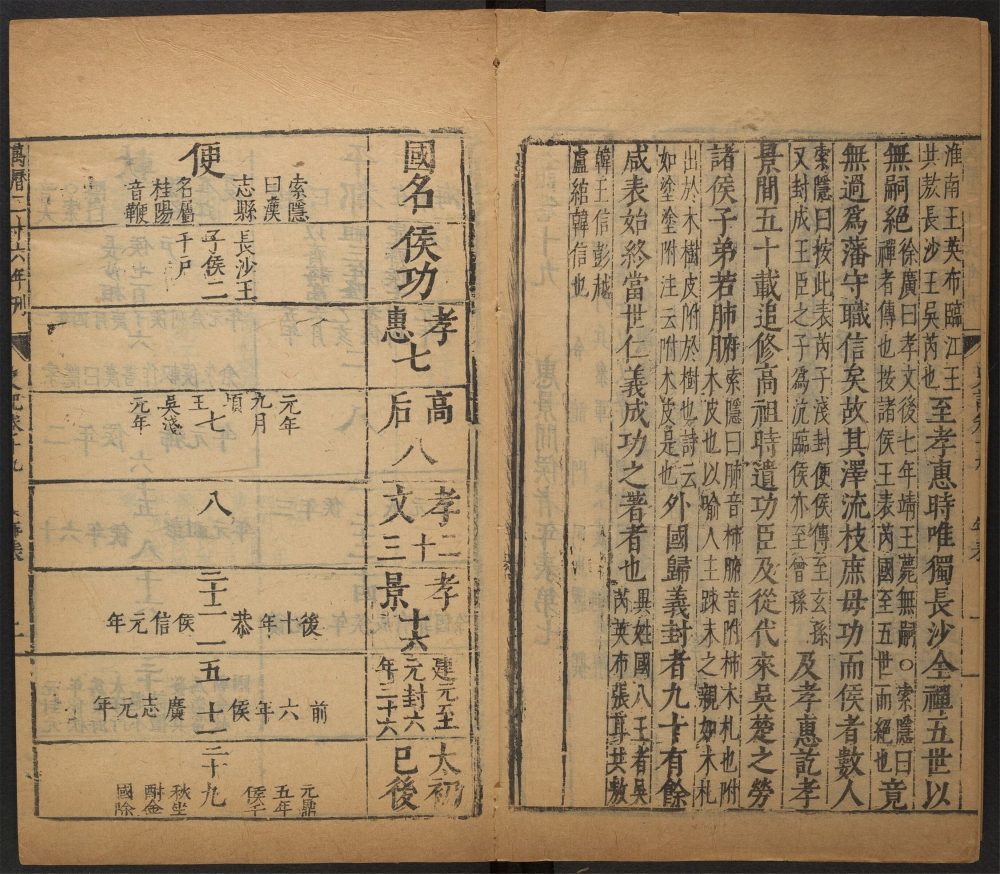 淮南王英布臨江王
共敖長沙王吳芮也
至孝惠時唯獨長沙全禪五世以
無嗣絕
徐廣曰孝文後七年靖王薨無嗣○索隱曰
禪者傳也按諸侯王表芮國至五世而絕也
竟
無過為藩守職信矣故其澤流枝庶毋功而侯者數人
索隱曰按此表芮子淺封便侯傳至玄孫
又封成王臣之子為沅臨侯亦至曾孫
及孝惠訖孝
景間五十載追修高祖時遺功臣及從代來吳楚之勞
諸侯子弟若肺腑
索隱曰肺音柿腑音附柿木札也附
木皮也以喻人主踈末之親如木札
出於木樹皮附於樹也詩云
如塗塗附注云附木皮是也
外國歸義封者九十有餘
咸表始終當世仁義成功之著者也
異姓國八王者吳
芮英布張耳共敖
韓王信彭越
盧綰韓信也
國名
侯功
孝惠七
高后八
孝文二十三
孝景十六
建元至
元封六
年三十六
太初
已後
便
索隱
曰漢
志縣
名屬
桂陽
音鞭
長沙王
子侯二
千戶
元年
九月
七
頃
王
吳淺
元年
八
二十二
一
後十年恭侯信元年
五
十一
前六年侯廣志元年
二十九
元鼎
五年
侯千
秋坐
酎金
國除
萬曆二十六年刊